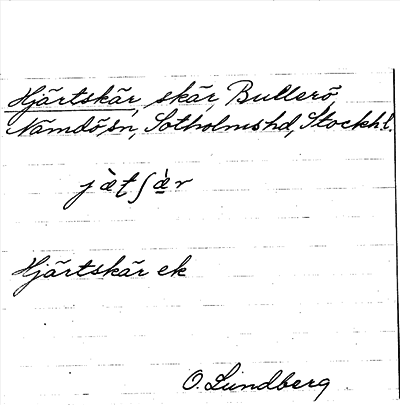 Hjärtskär, skär, Bullerö,
Nämdö sn, Sotholms hd, Stockh. l.
Hjärtskär ek
O. Lundberg